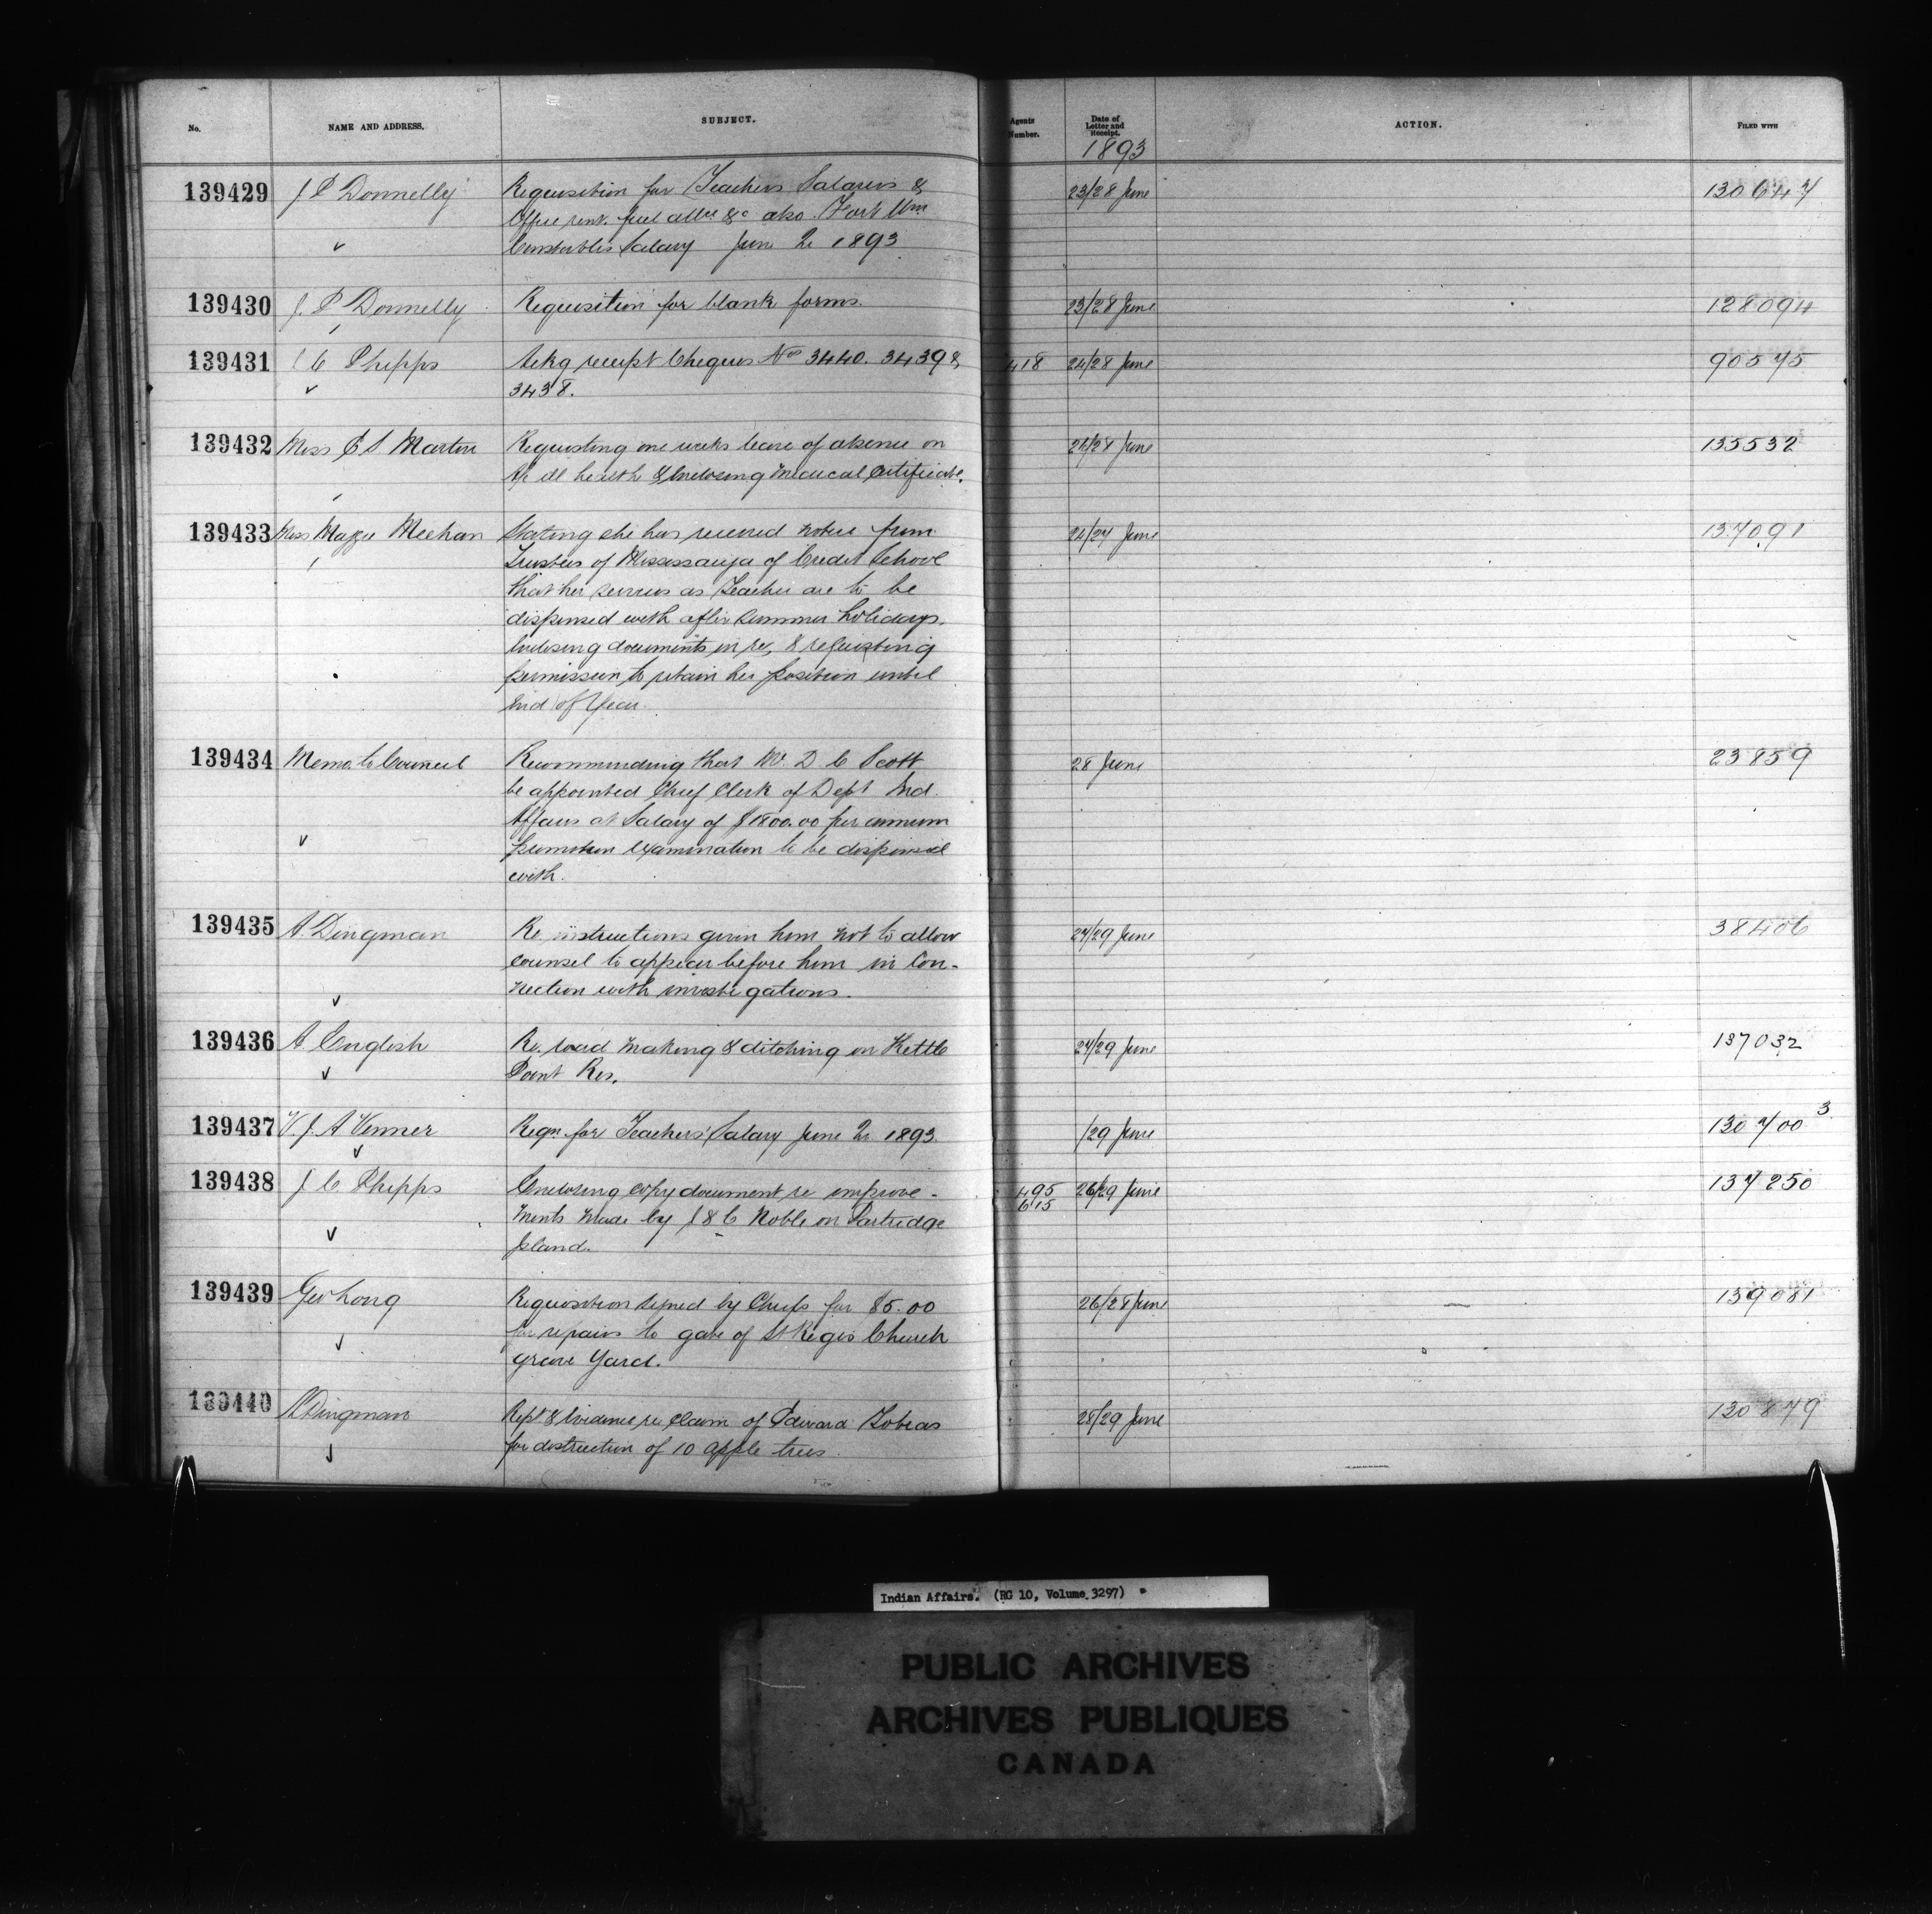 No.
NAME AND ADDRESS.
SUBJECT.
Agents Number.
Date of Letter and Receipt.
ACTION.
FILED WITH
1893
139429
J P Donnelly
Requisition for Teachers Salaries &
Office rent. fuel allce &c also Fort Wm
Constables Salary June Qr 1893
23/28 June
130647
139430
J. P Donnelly
Requisition for blank forms.
23/28 June
128094
139431
J C Phipps
Ackg receipt Cheques Nos 3440. 3439 &
3438.
418
24/28 June
90575
139432
Miss C S. Martin
Requesting one weeks leave of absence on
a/c ill health & Enclosing Medical Certificate.
28 June
135532
139433
Miss Meehan
Stating she has received notice from
Trustees of Mississauga of Credit School
that her services as Teacher are to be
dispensed with after Summer holidays.
Enclosing documents in re, & requesting
permission to retain her position until
End of Year.
June
137091
139434
Memo. to Council
Recommending that Mr. D C Scott
be appointed Chief Clerk of Dept Ind.
Affairs at Salary of $1800.00 per annum
promotion examination to be dispensed
with.
28 June
23859
139435
A. Dingman
Re instructions given him not to allow
counsel to appear before him in Con-
nection with investigations.
27/29 June
38406
139436
A. English
Re. road making & ditching on Kettle
Point Res.
27/29 June
137032
139437
V. J. A Venner
Reqn for Teachers' Salary June Qr 1893.
/29 June
130700 3
139438
J. C. Phipps
Enclosing copy document re improve-
ments made by J & C Noble on Partridge
Island.
495
615
26/29 June
137250
139439
Geo Long
Requisition signed by Chiefs for $5.00
for repairs to gate of St Regis Church
grave Yard.
26/28 June
139081
139440
A Dingman
Rept & Evidence re Claim of Edward Tobias
for destruction of 10 apple trees.
28/29 June
130879
Indian Affairs. (RG 10, Volume 3297)
PUBLIC ARCHIVES
ARCHIVES PUBLIQUES
CANADA